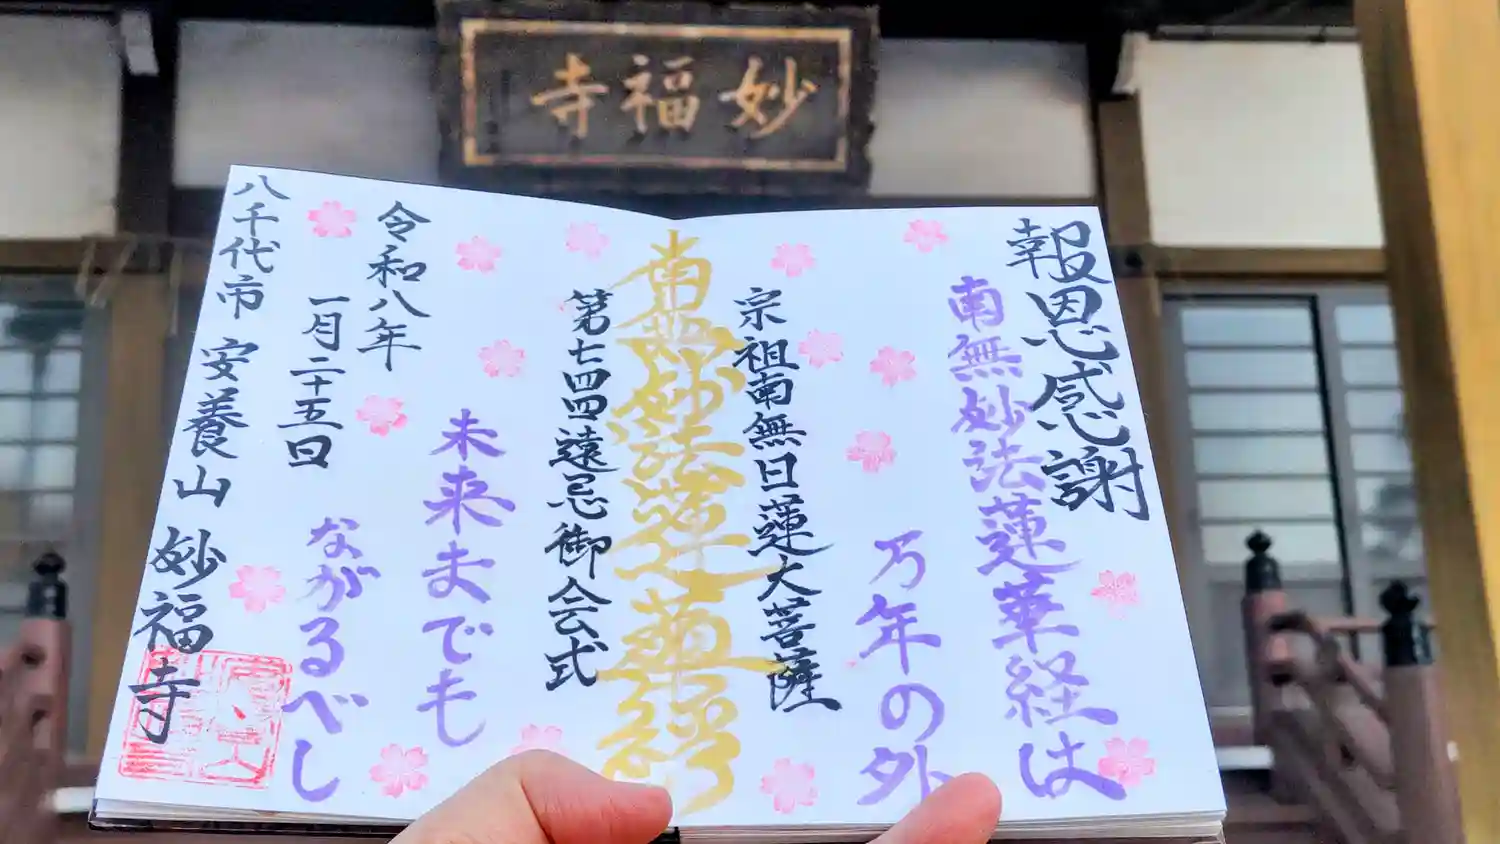 妙福寺
報恩感謝
南無妙法蓮華経は
万年の外
宗祖南無日蓮大菩薩
南無妙法蓮華経
第七四四遠忌御会式
未来までも
ながるべし
令和八年
一月二十五日
八千代市 安養山 妙福寺